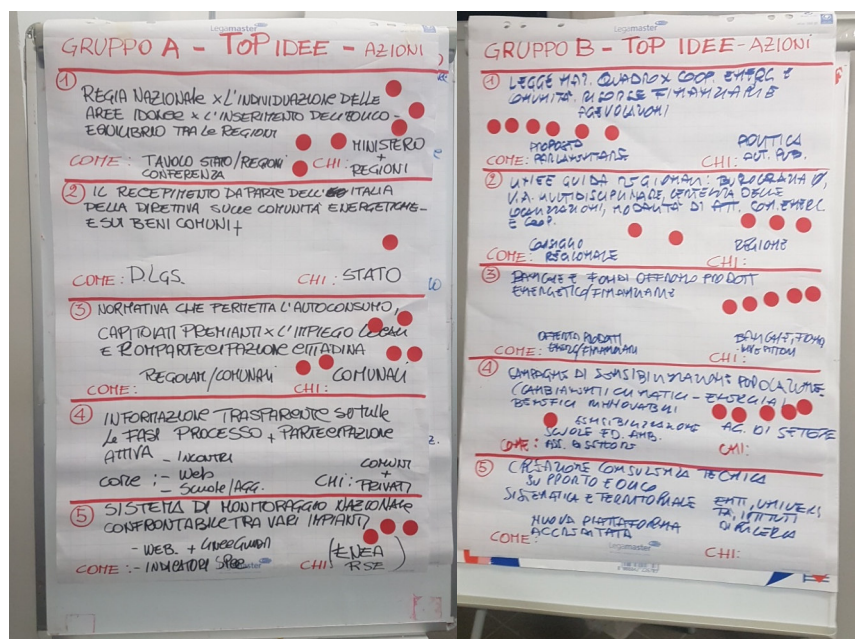 Legamaster
GRUPPO A - TOP IDEE - AZIONI
①
REGIA NAZIONALE x L'INDIVIDUAZIONE DELLE
AREE IDONEE x L'INSERIMENTO DELL'EOLICO -
EQUILIBRIO TRA LE REGIONI
COME: TAVOLO STATO/REGIONI
CONFERENZA
CHI: MINISTERO
+
REGIONI
② IL RECEPIMENTO DA PARTE DELL' ITALIA
DELLA DIRETTIVA SULLE COMUNITÀ ENERGETICHE -
E SUI BENI COMUNI +
COME: D.LGS.
CHI: STATO
③ NORMATIVA CHE PERMETTA L'AUTOCONSUMO,
CAPITOLATI PREMIANTI x L'IMPIEGO LOCALI
E PARTECIPAZIONE CITTADINA
COME: REGOLAM/COMUNALI
CHI: COMUNALI
④ INFORMAZIONE TRASPARENTE SU TUTTE
LE FASI PROCESSO + PARTECIPAZIONE
ATTIVA - INCONTRI
COME: - WEB
- SCUOLE/AGG.
CHI: COMUNI
+
PRIVATI
⑤ SISTEMA DI MONITORAGGIO NAZIONALE
CONFRONTABILE TRA VARI IMPIANTI
- WEB. + LINEE GUIDA
COME: - INDICATORI
CHI (ENEA
RSE)
Legamaster
GRUPPO B - TOP IDEE - AZIONI
① LEGGE NAZ. QUADRO x COOP. ENERG. E
COMUNITÀ. RISORSE FINANZIARIE
AGEVOLAZIONI
COME: PROPOSTA
PARLAMENTARE
CHI: POLITICA
AUT. PUB.
② LINEE GUIDA REGIONALI: BUROCRAZIA
V.A. MULTIDISCIPLINARE, CERTEZZA DELLE
LOCALIZZAZIONI, MODALITÀ DI ATT. COM. ENERG.
E COOP.
COME: CONSIGLIO
REGIONALE
CHI: REGIONE
③ BANCHE E FONDI OFFRONO PRODOTTI
ENERGETICO/FINANZIARI
COME: OFFERTA PRODOTTI
ENERG/FINANZIARI
CHI: BANCHE, FONDI
INVESTITORI
④ CAMPAGNE DI SENSIBILIZZAZIONE POPOLAZIONE
(CAMBIAMENTI CLIMATICI - ENERGIA)
BENEFICI RINNOVABILI
SENSIBILIZZAZIONE
SCUOLE ED. AMB.
COME: ASS. DI SETTORE
CHI: AG. DI SETTORE
⑤ CREAZIONE CONSULENZA TECNICA
SUPPORTO EOLICO
SISTEMATICA E TERRITORIALE
COME: NUOVA PIATTAFORMA
ACCREDITATA
CHI: ENTI, UNIVERSI
TÀ, ISTITUTI
DI RICERCA
Legamaster